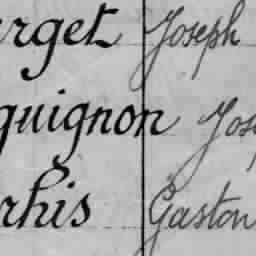 urget Joseph
quignon Jos
rhis Gaston